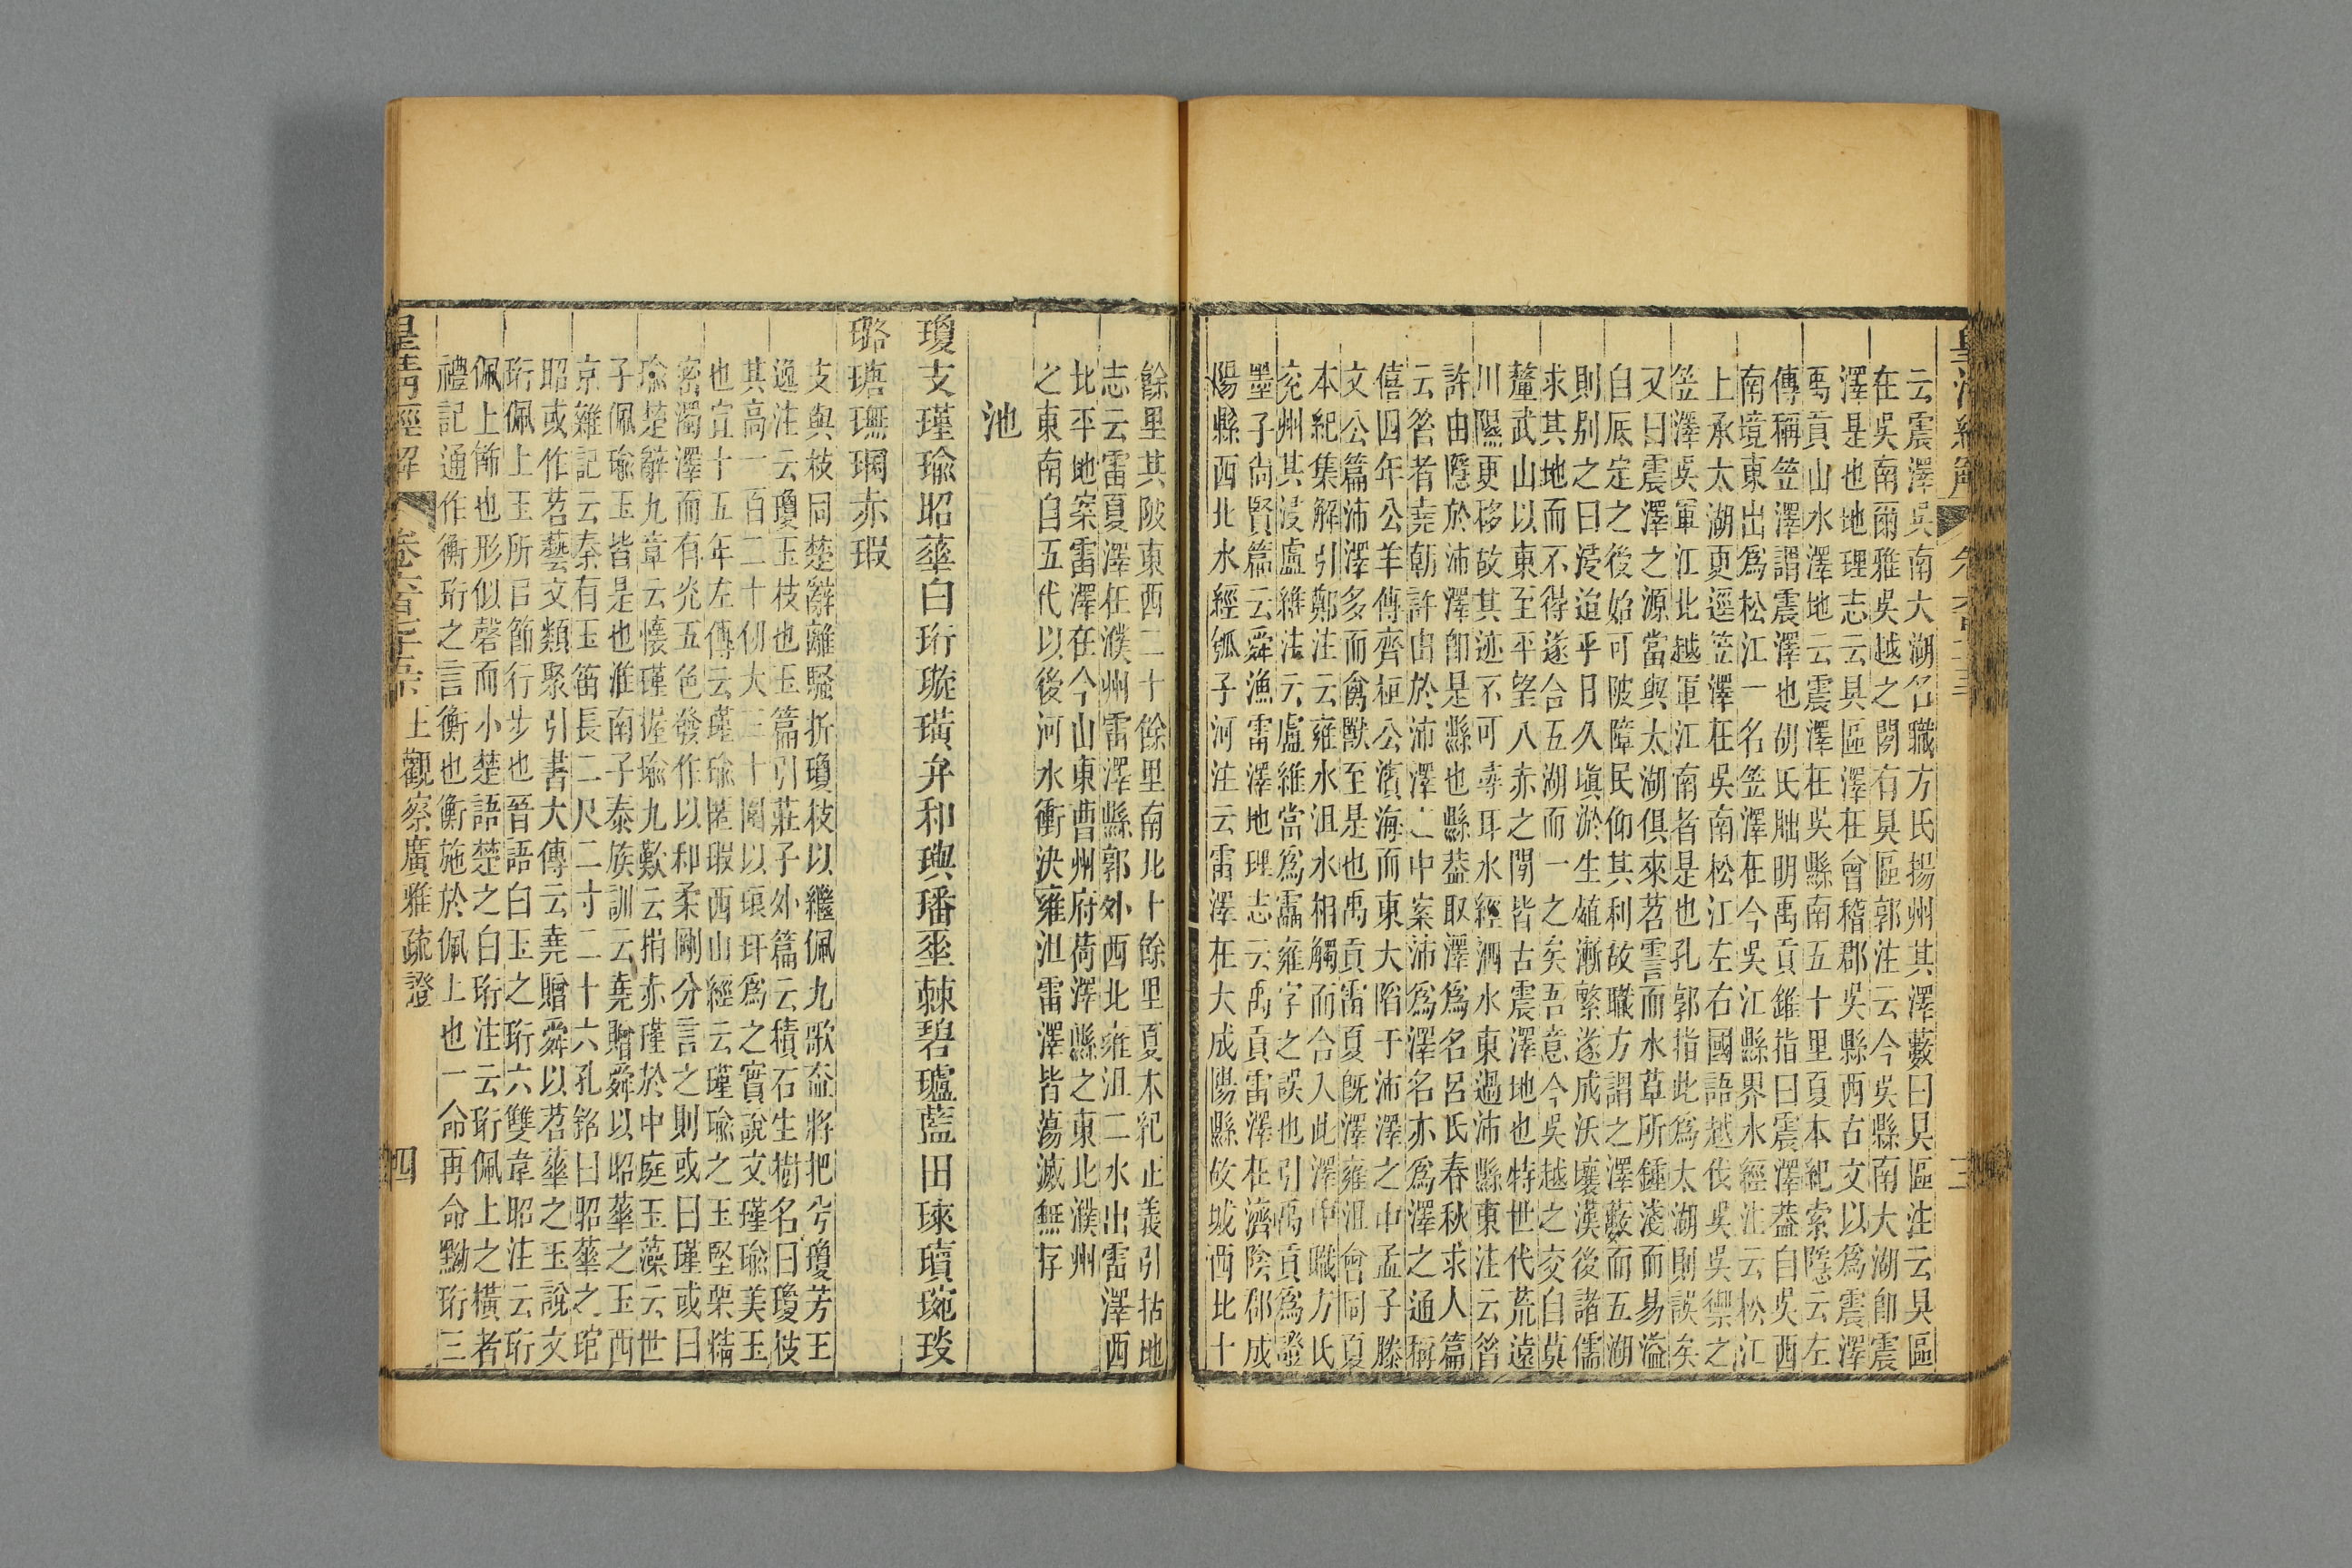 云震澤吳南大湖名職方氏揚州其澤藪曰具區注云具區
在吳南爾雅吳越之閒有具區郭注云今吳縣南大湖卽震
澤是也地理志云具區澤在會稽郡吳縣西古文以爲震澤
禹貢山水澤地云震澤在吳縣南五十里夏本紀索隱云左
傳稱笠澤謂震澤也胡氏朏明禹貢錐指曰震澤葢自吳西
南境東出爲松江一名笠澤在今吳江縣界水經注云松江
上承太湖更逕笠澤在吳南松江左右國語越伐吳吳禦之
笠澤吳軍江北越軍江南者是也孔郭指此爲太湖則誤矣
又曰震澤之源當與太湖俱來茗霅而水草所鍾淺而易溢
自厎定之後始可陂障民仰其利故職方謂之澤藪而五湖
則別之曰浸迨乎日久塡淤生殖漸繁遂成沃壤漢後諸儒
求其地而不得遂合五湖而一之矣吾意今吳越之交自莫
釐武山以東至平望八赤之閒皆古震澤地也特世代荒遠
川隰更移故其迹不可尋耳水經泗水東過沛縣東注云昔
許由隱於沛澤卽是縣也縣葢取澤爲名呂氏春秋求人篇
云昔者堯朝許由於沛澤之中案沛爲澤名亦爲澤之通稱
僖四年公羊傳齊桓公濱海而東大陷于沛澤之中孟子滕
文公篇沛澤多而禽獸至是也禹貢雷夏旣澤雍沮會同夏
本紀集解引鄭注云雍水沮水相觸而合入此澤中職方氏
兖州其浸盧維注云盧維當爲靁雍字之誤也引禹貢爲證
墨子尙賢篇云舜漁雷澤地理志云禹貢雷澤在濟陰郕成
陽縣西北水經瓠子河注云雷澤在大成陽縣故城西北十
餘里其陂東西二十餘里南北十餘里夏本紀正義引括地
志云雷夏澤在濮州雷澤縣郭外西北雍沮二水出雷澤西
北平地案雷澤在今山東曹州府荷澤縣之東北濮州
之東南自五代以後河水衝決雍沮雷澤皆蕩滅無存
池
瓊支瑾瑜昭華白珩璇璜弁和璵璠垂棘碧瓐藍田琜瓄琬琰
璐瑭璑琱赤瑕
支與枝同楚辭離騷折瓊枝以繼佩九歌盍將把兮瓊芳王
逸注云瓊玉枝也玉篇引莊子外篇云積石生樹名曰瓊枝
其高一百二十仞大三十圍以琅玕爲之實說文瑾瑜美玉
也宣十五年左傳云瑾瑜匿瑕西山經云瑾瑜之玉堅栗精
密濁澤而有光五色發作以和柔剛分言之則或曰瑾或曰
瑜楚辭九章云懷瑾握瑜九歎云捐赤瑾於中庭玉藻云世
子佩瑜玉皆是也淮南子泰族訓云堯贈舜以昭華之玉西
京雜記云秦有玉笛長二尺二寸二十六孔銘曰昭華之琯
昭或作茗藝文類聚引書大傳云堯贈舜以茗華之玉說文
珩佩上玉所㠯節行步也晉語白玉之珩六雙韋昭注云珩
佩上飾也形似磬而小楚語楚之白珩注云珩佩上之橫者
禮記通作衡珩之言衡也衡施於佩上也一命再命黝珩三
皇淸經解 卷六百七十五上 觀察廣雅疏證 四